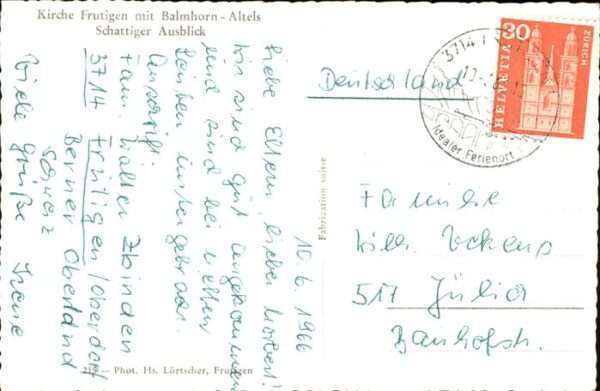 Kirche Frutigen mit Balmhorn - Altels
Schattiger Ausblick
10.6.1966
Liebe Eltern, lieber
Wir sind gut angekommen
und sind bei
Anschrift:
Fam. Walter Zbinden
3714 Frutigen/Oberdorf
Berner Oberland
Schweiz
Viele Grüße Irene
Fabrication suisse
Phot. Hs. Lörtscher, Frutigen
3714
Idealer Ferienort
30
HELVETIA
ZÜRICH
Deutschland
Familie
Willi
517 Jülich
Bahnhofstr.